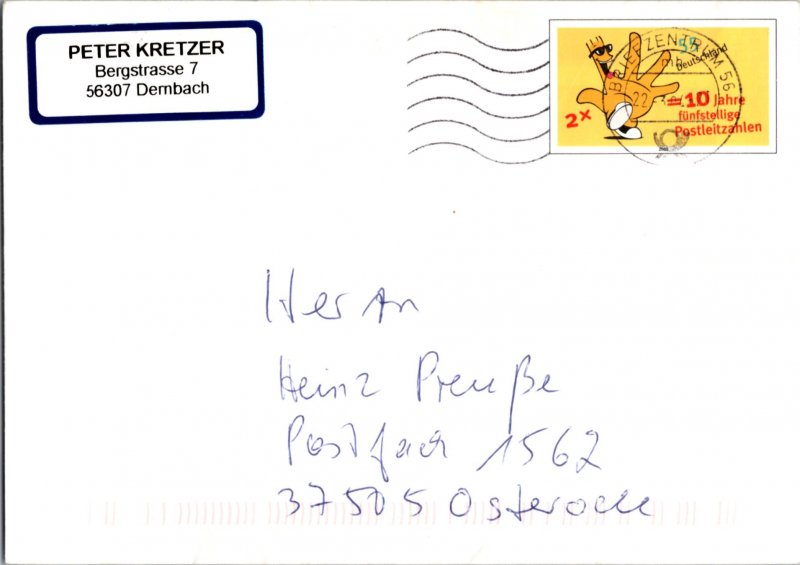 PETER KRETZER
Bergstrasse 7
56307 Dernbach
55
Deutschland
BRIEFZENTRUM 56
22
2x
=10 Jahre
fünfstellige
Postleitzahlen
Herrn
Heinz Preuße
Postfach 1562
37505 Osterode